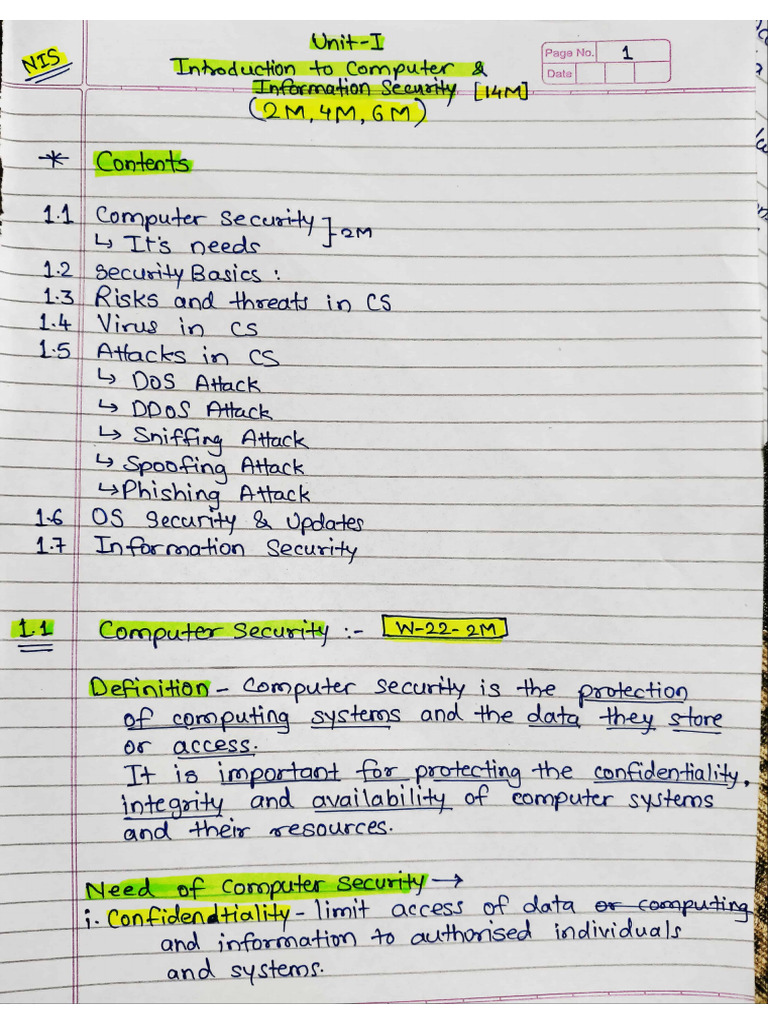 NIS
Unit-I
Page No. 1
Date
Introduction to Computer &
Information Security [14M]
(2M, 4M, 6M)
* Contents
1.1 Computer Security ]2M
↳ It's needs
1.2 Security Basics :
1.3 Risks and threats in CS
1.4 Virus in CS
1.5 Attacks in CS
↳ DOS Attack
↳ DDOS Attack
↳ Sniffing Attack
↳ Spoofing Attack
↳ Phishing Attack
1.6 OS Security & Updates
1.7 Information Security
1.1 Computer Security :- W-22-2M
Definition - Computer security is the protection
of computing systems and the data they store
or access.
It is important for protecting the confidentiality,
integrity and availability of computer systems
and their resources.
Need of Computer Security →
i. Confidendtiality - limit access of data or computing
and information to authorised individuals
and systems.